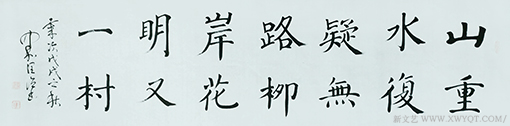 山重
水復
疑無
路柳
岸花
明又
一村
新文艺 WWW.XWYQT.COM